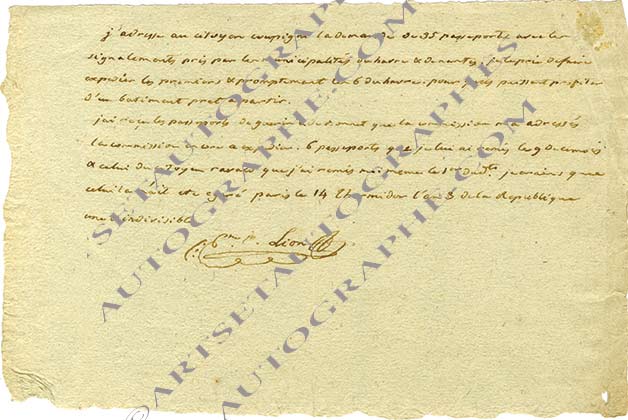 j'adresse au citoyen coupigny la demande de 35 passeports avec les
signalements pris par les municipalités du havre & de nantes. je le prie de faire
expédier les premiers & promptement les 6 du havre. pour qu'ils puissent profiter
d'un batiment pret a partir.
j'ai reçu les passeports de guerin & de sionnet que la commission m'a adressés
la commission encore a expedier. 6 passeports que je lui ai remis le 9 de ce mois
& celui du citoyen que j'ai remis moi meme le 1er dudt. je crains que
celui la n'ait eté egaré paris le 14 thermidor l'an 3 de la Republique
une & indivisible
Lion
© ARTSETAUTOGRAPHES
AUTOGRAPHE.COM